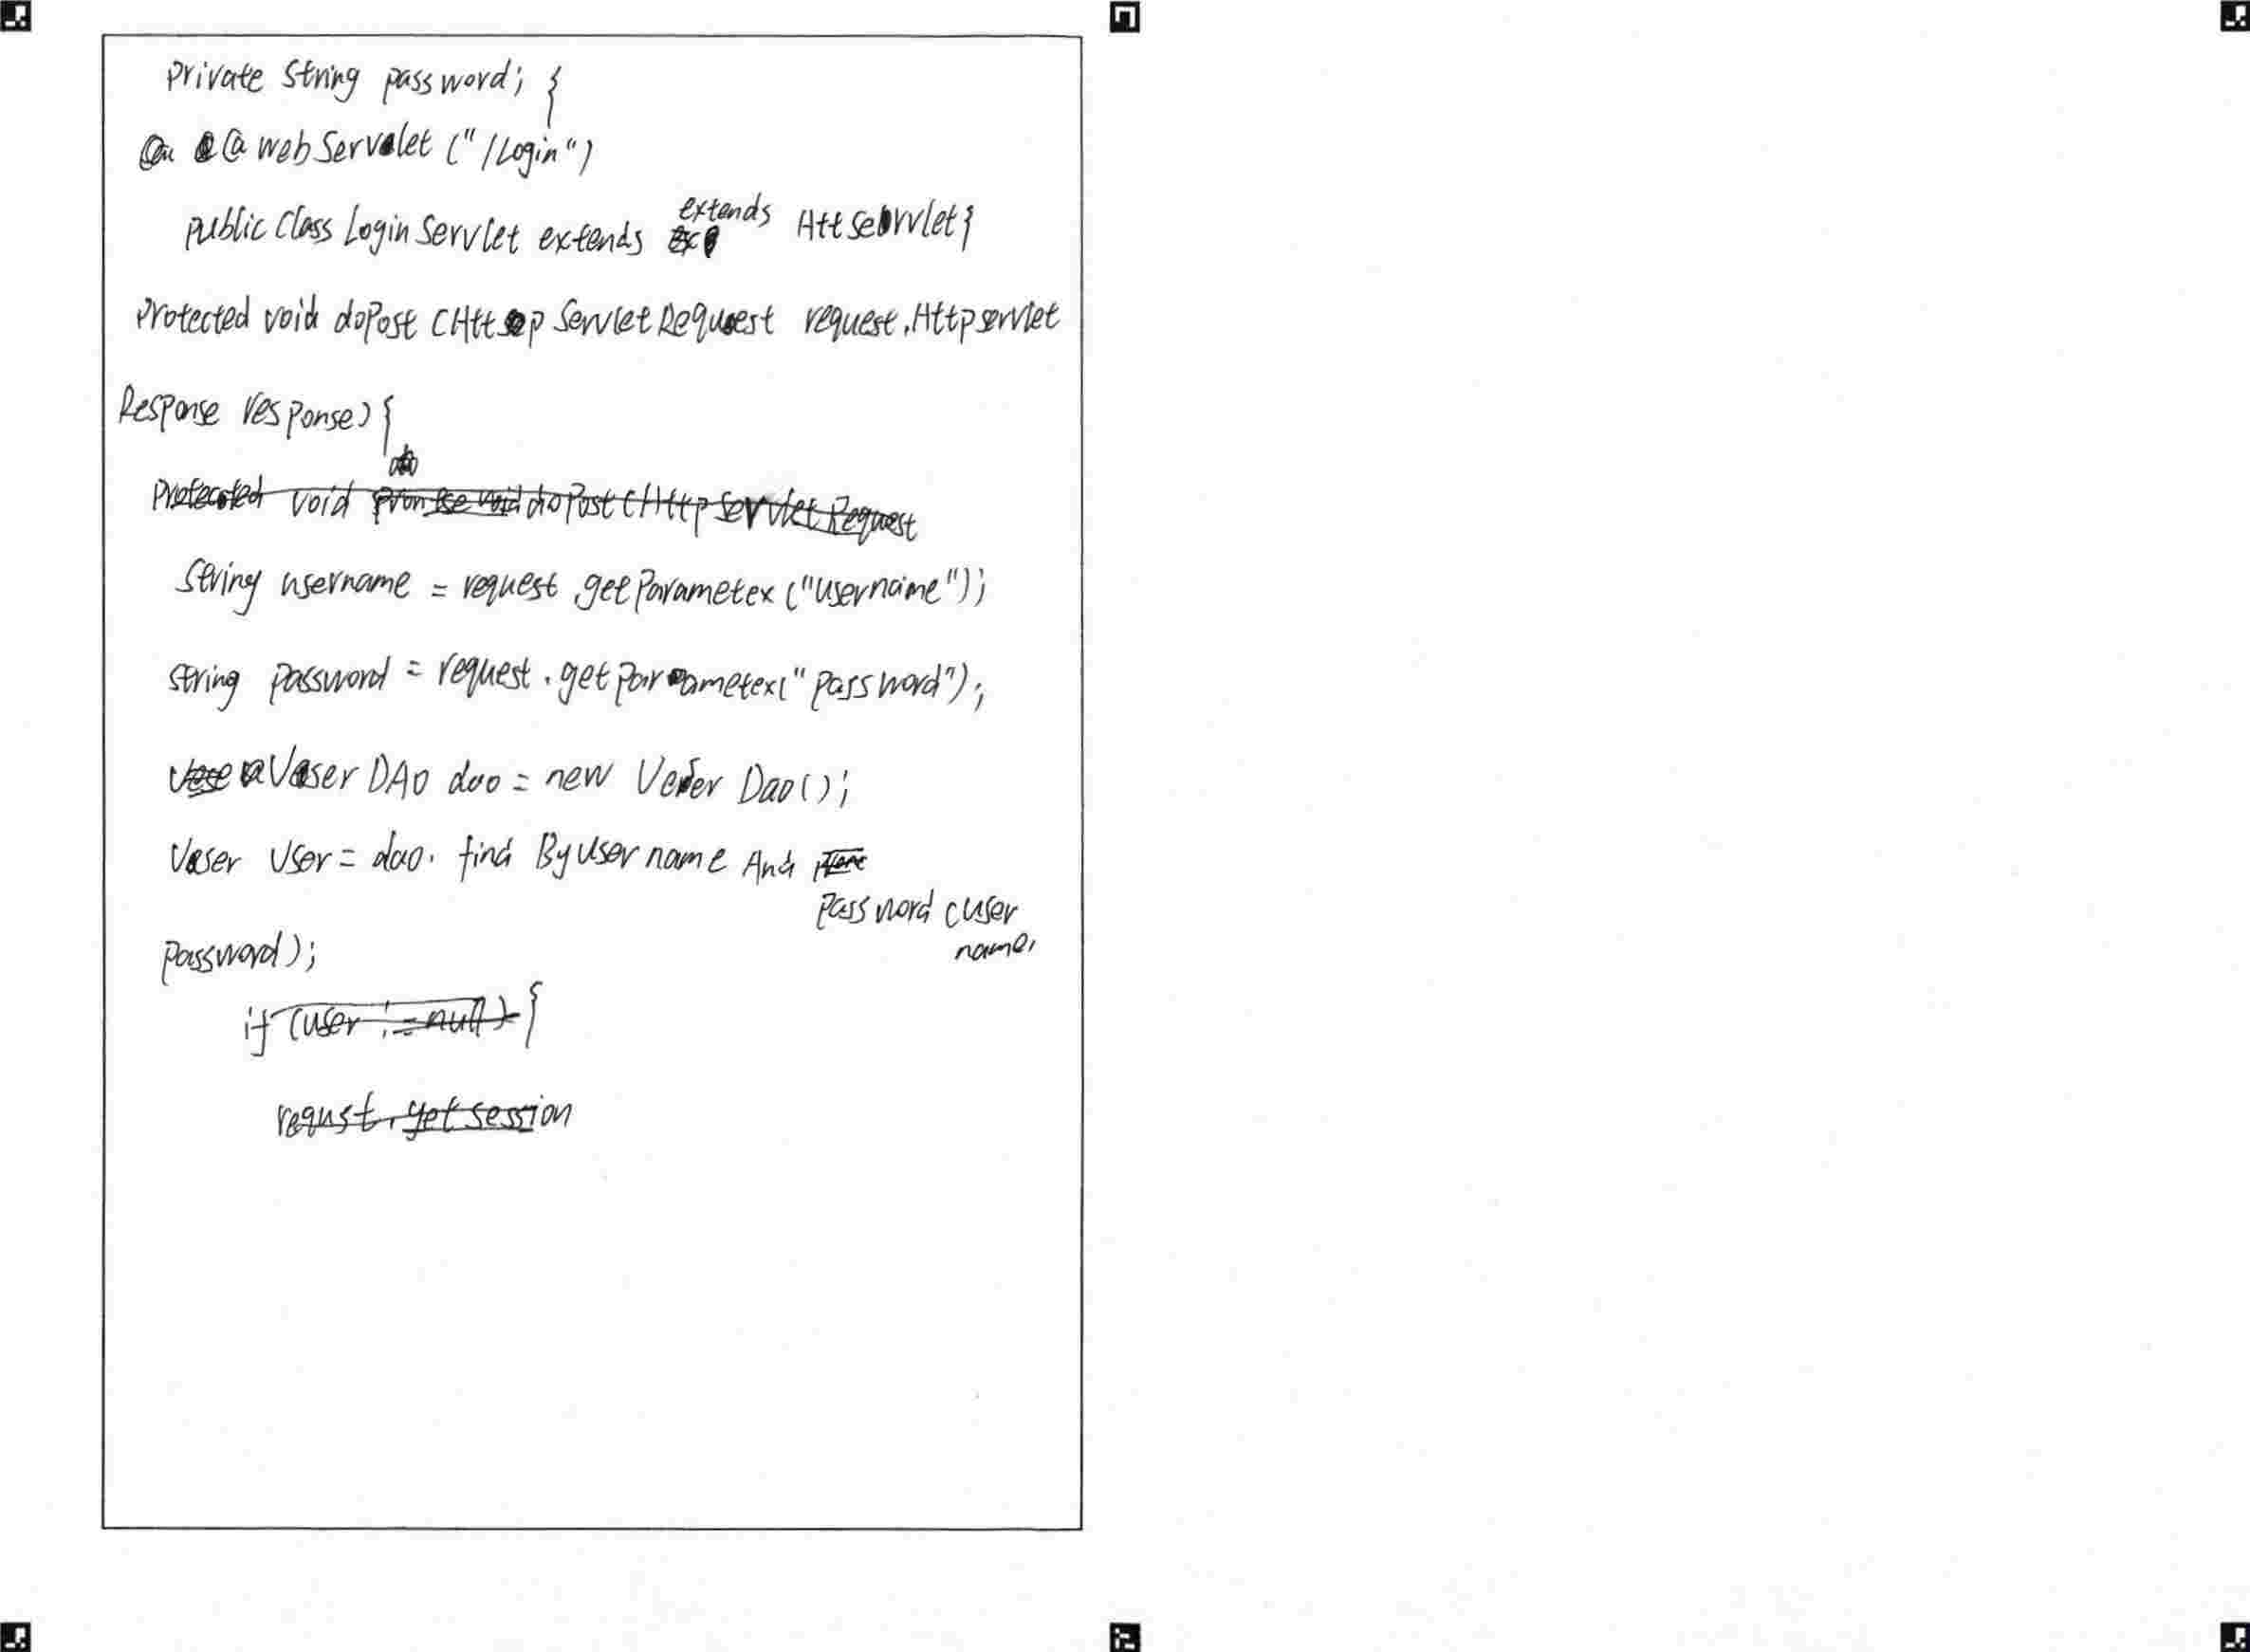 private String password; {
@webServlet ("/Login")
public class Login Servlet extends extends Htt servlet {
Protected void doPost (Http Servlet Request request, Http servlet
Response response) {
String username = request.getParametex ("username");
String password = request.getparametex("password");
User DAO dao = new User Dao();
User User = dao. find By user name And
password (user
name,
password);
if (user != null) {
requst. get session